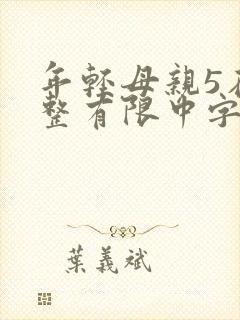 年輕母親5在
整有限中字
葉義斌